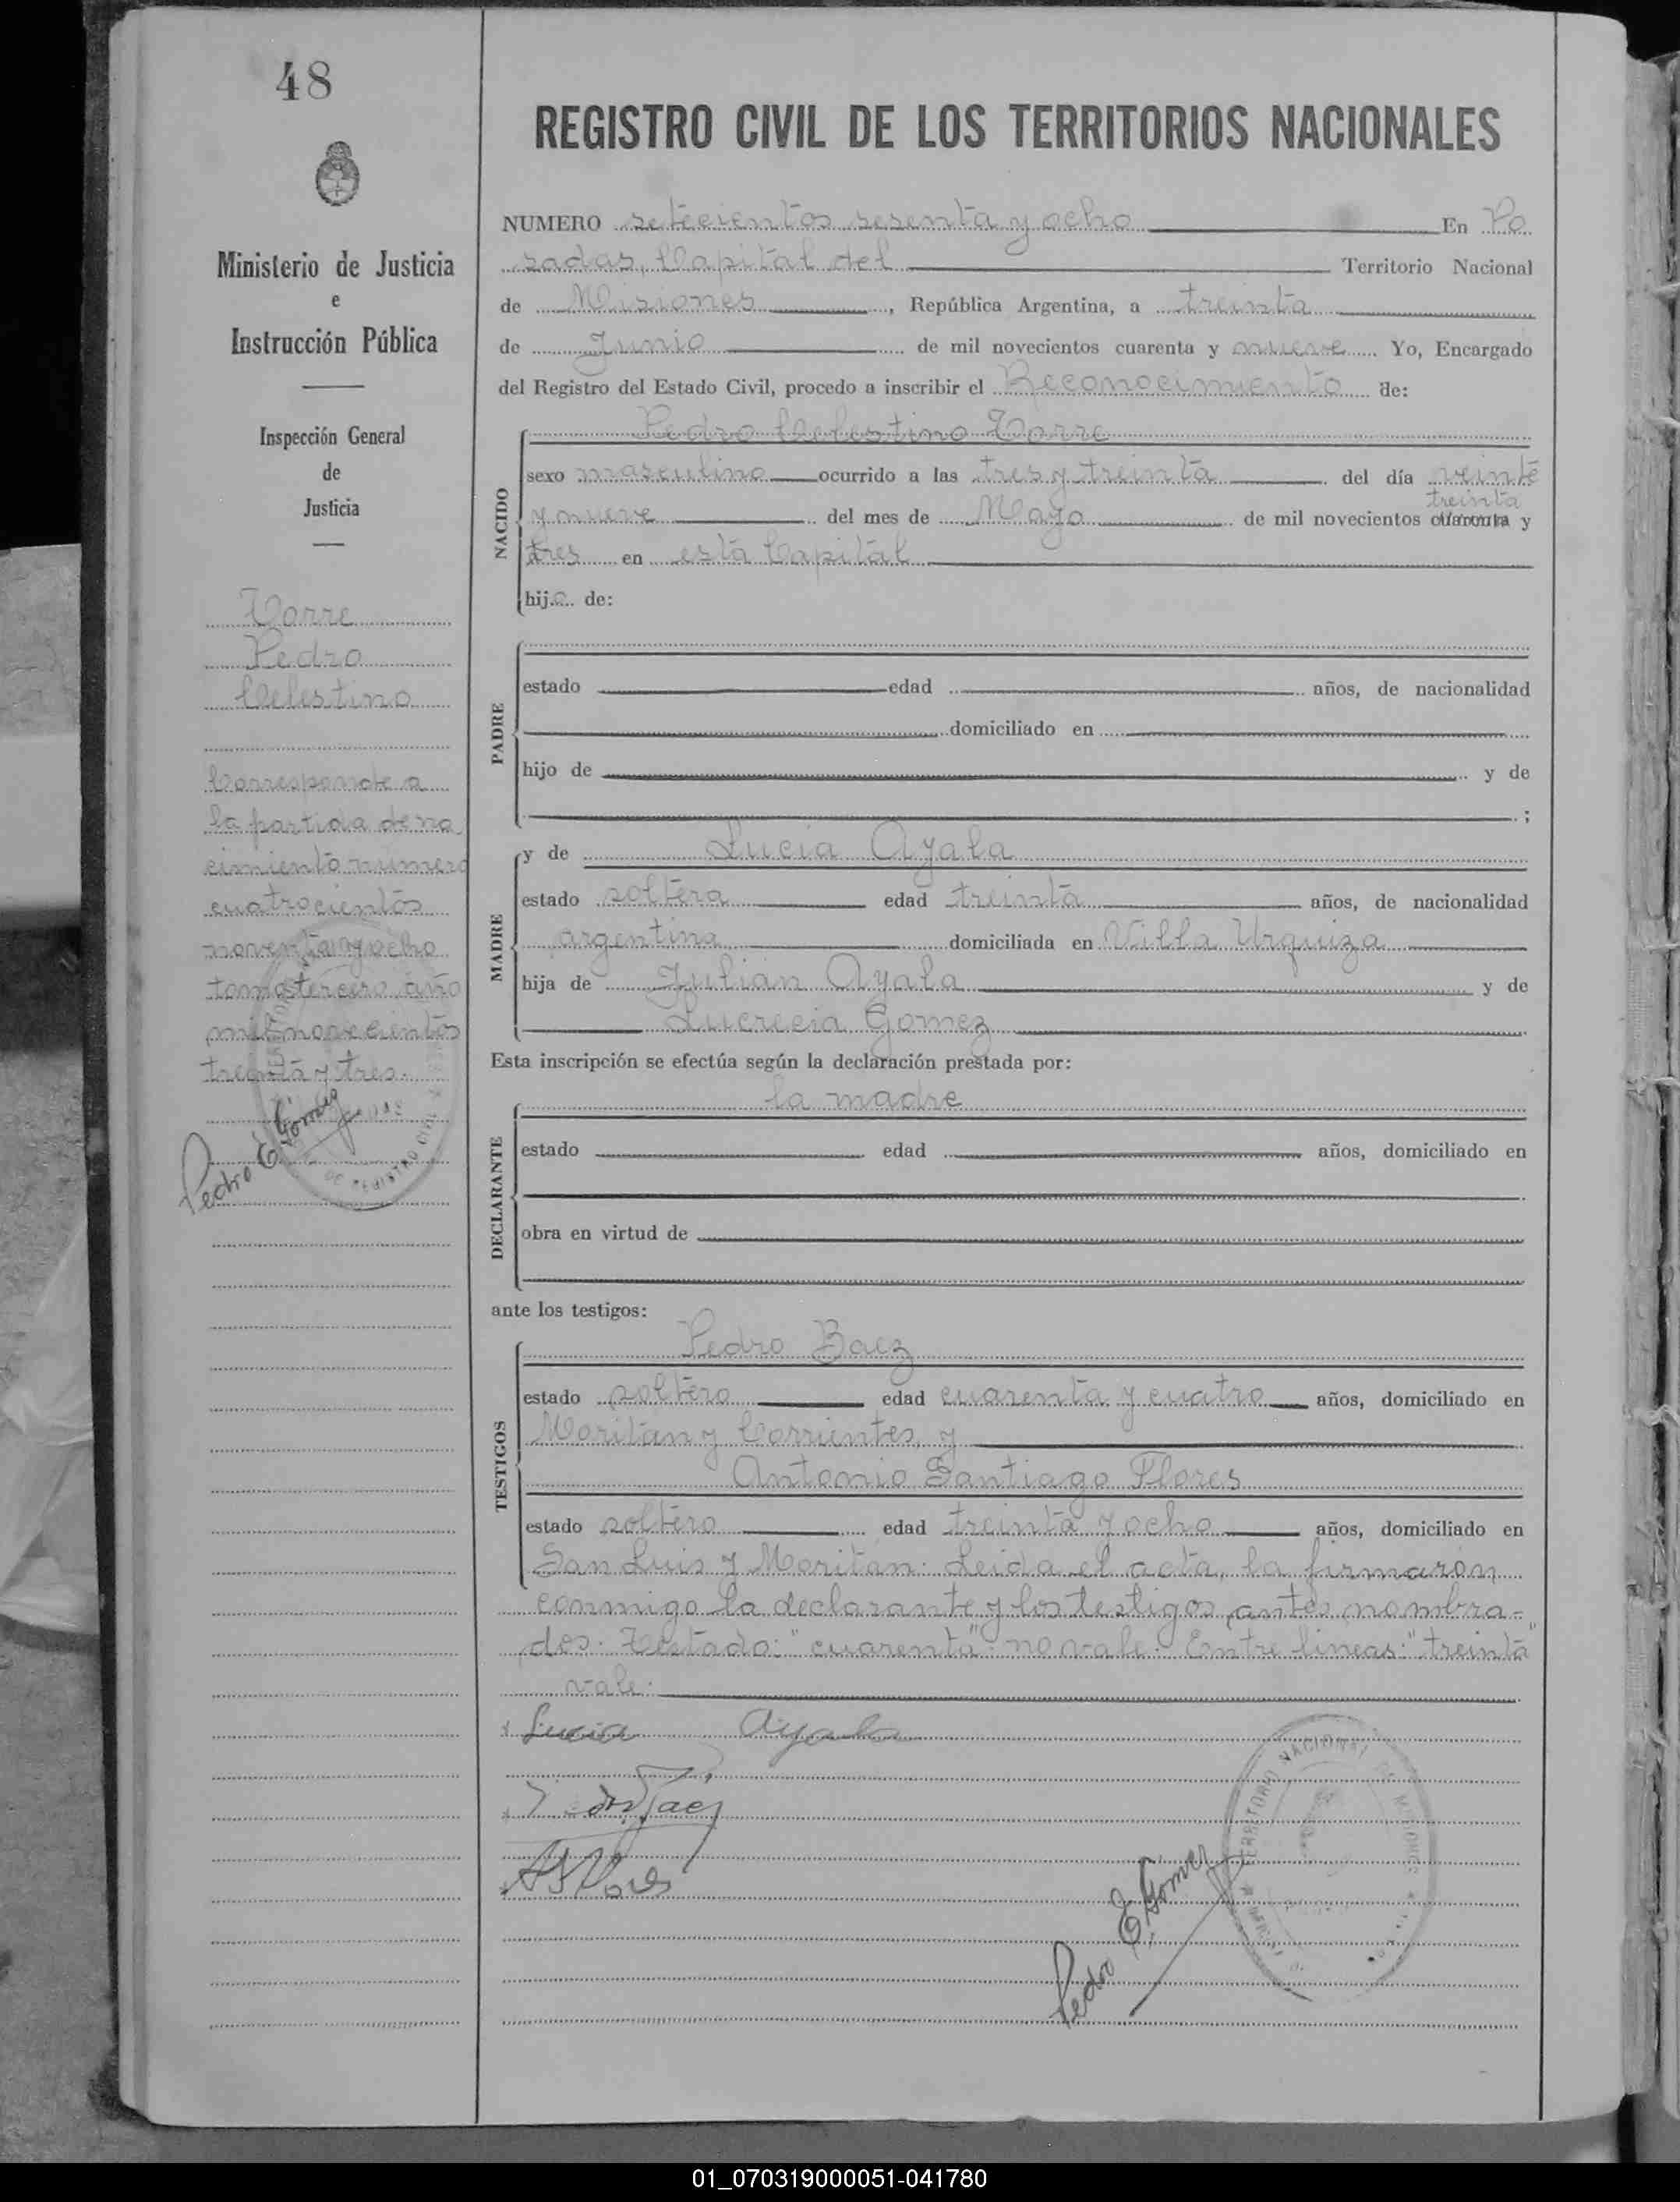 48
Ministerio de Justicia
e
Instrucción Pública
Inspección General
de
Justicia
Torre
Pedro
Celestino
Corresponde a
la partida de na
cimiento número
cuatrocientos
noventa y ocho
tomo tercero, año
mil novecientos
treinta y tres.
Pedro E. Gómez
REGISTRO CIVIL DE LOS TERRITORIOS NACIONALES
NUMERO setecientos sesenta y ocho En Po
sadas, Capital del Territorio Nacional
de Misiones, República Argentina, a treinta
de Junio de mil novecientos cuarenta y nueve Yo, Encargado
del Registro del Estado Civil, procedo a inscribir el Reconocimiento de:
NACIDO
Pedro Celestino Torre
sexo masculino ocurrido a las tres y treinta del día veinte
treinta
y nueve del mes de Mayo de mil novecientos cuarenta y
tres en esta Capital
hijo de:
PADRE
estado edad años, de nacionalidad
domiciliado en
hijo de y de
;
MADRE
y de Lucia Ayala
estado soltera edad treinta años, de nacionalidad
argentina domiciliada en Villa Urquiza
hija de Julián Ayala y de
Lucrecia Gomez
Esta inscripción se efectúa según la declaración prestada por:
DECLARANTE
la madre
estado edad años, domiciliado en
obra en virtud de
ante los testigos:
TESTIGOS
Pedro Baez
estado soltero edad cuarenta y cuatro años, domiciliado en
Moritán y Corrientes, y
Antonio Santiago Flores
estado soltero edad treinta y ocho años, domiciliado en
San Luis y Moritán. Leida el acta, la firmaron
conmigo la declarante y los testigos antes nombra-
dos. Testado: "cuarenta" no vale. Entre lineas: "treinta"
vale.
Lucia Ayala
Pedro Baez
A S Flores
Pedro E. Gómez
TERRITORIO NACIONAL DE MISIONES
01_070319000051-041780